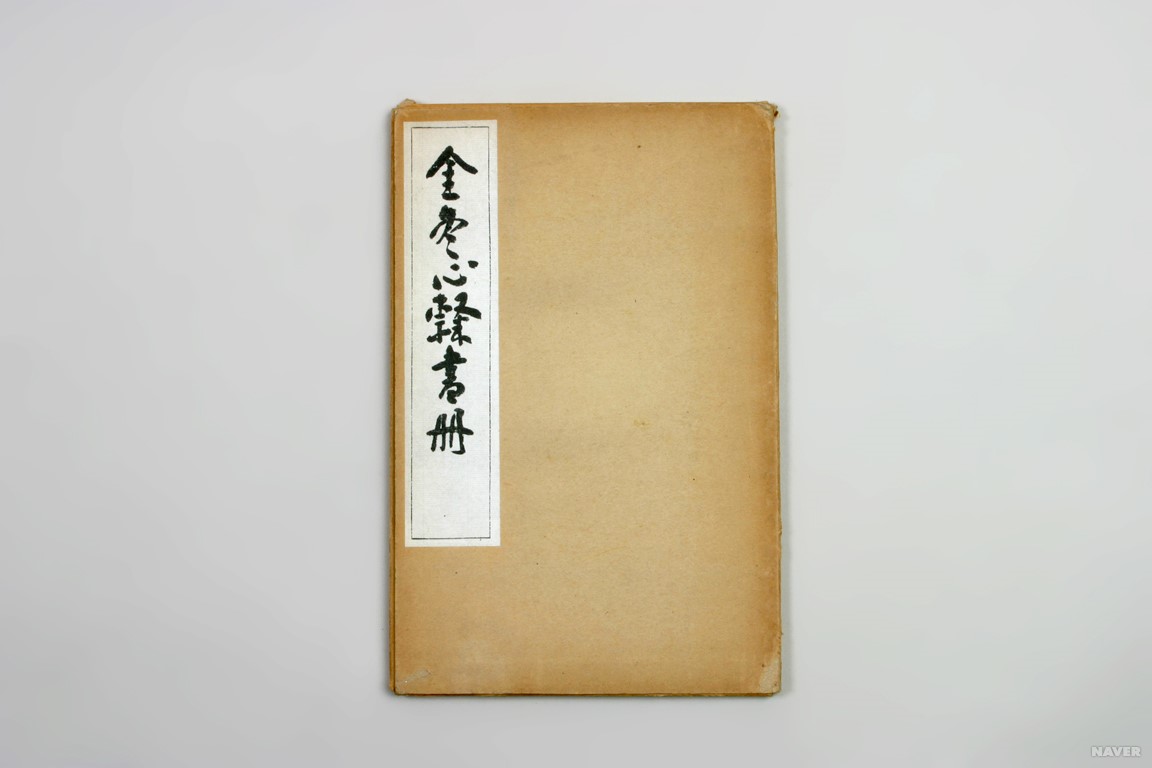 金冬心隸書册
NAVER